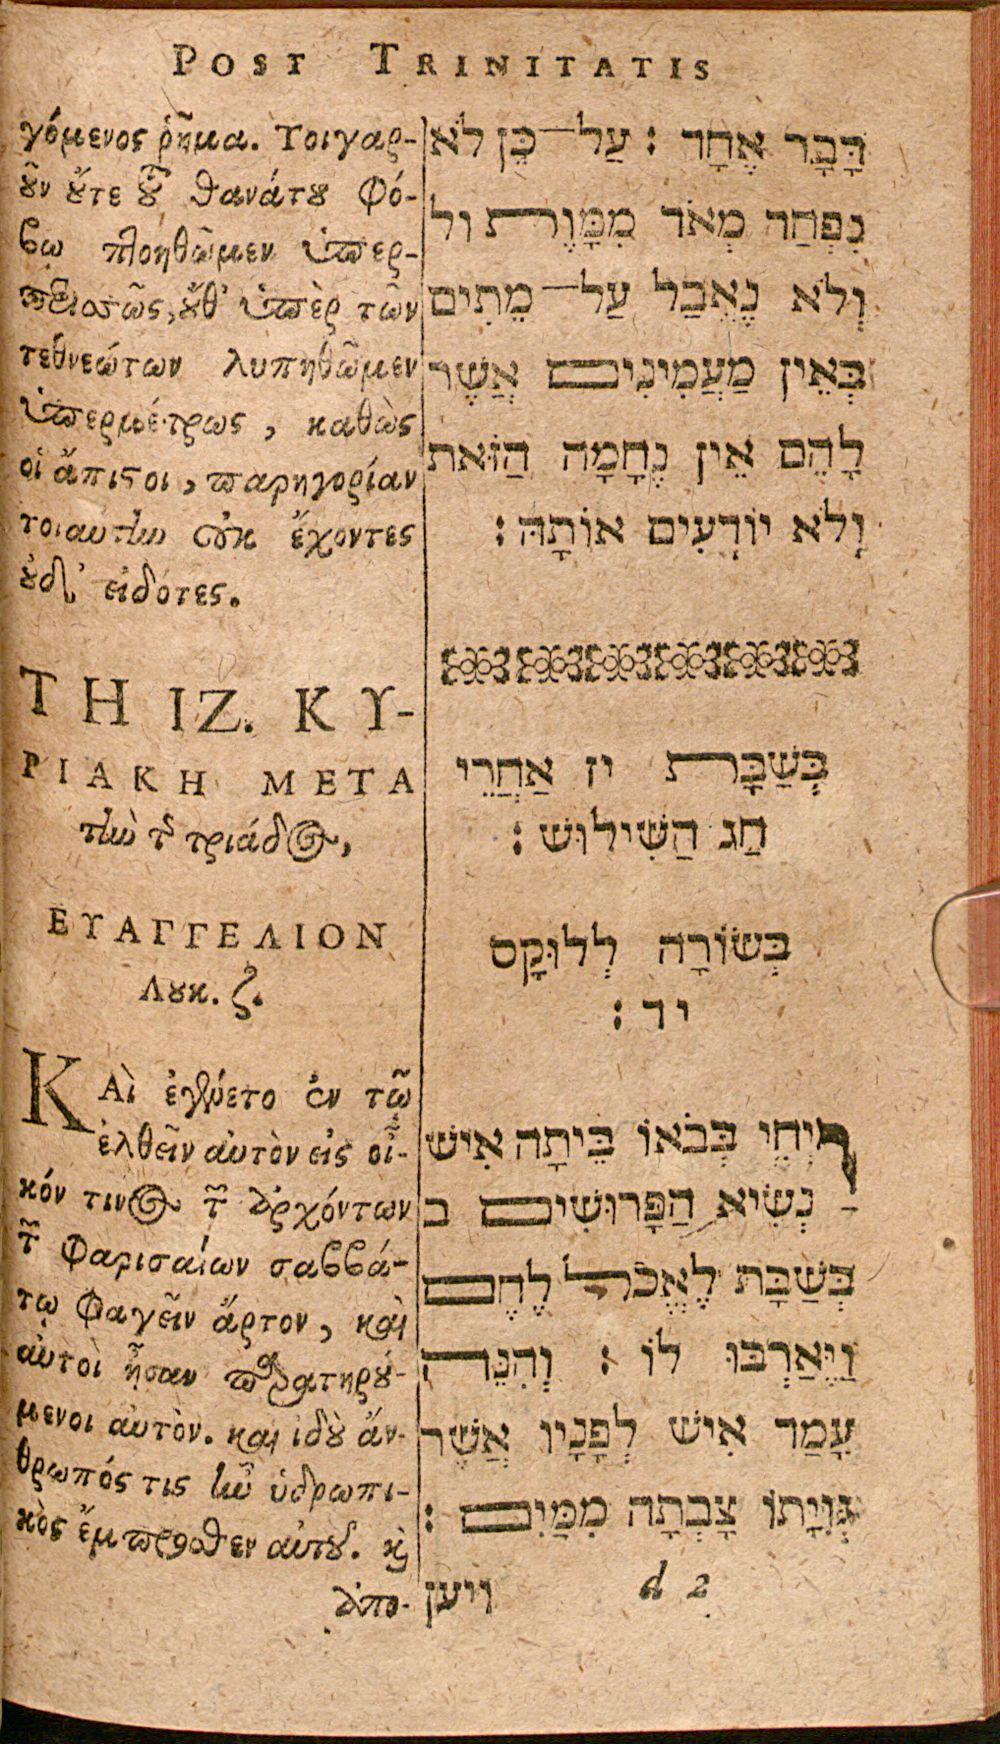 POST TRINITATIS
γόμενος ῥῆμα. Τοιγαρ-
ȣ͂ν ȣ̓́τε θανάτȣ φό-
βῳ πτοηθῶμεν ὑπερ-
πεισσῶς, ȣ̓́θ' ὑπὲρ τῶν
τεθνεώτων λυπηθῶμεν
ὑπερμέτρως, καθὼς
οἱ ἄπιστοι, παρηγορίαν
τοιαυτὴν οὐκ ἔχοντες
ȣ̓δ' εἰδότες.
ΤΗ ΙΖ. ΚΥ-
ΡΙΑΚΗ ΜΕΤΑ
τὴν τ͂ τριάδος,
ΕΥΑΓΓΕΛΙΟΝ
Λȣκ. ζ.
ΚΑὶ ἐγένετο ἐν τῷ
ἐλθεῖν αὐτὸν εἰς οἶ-
κόν τινος τ͂ ἀρχόντων
τ͂ Φαρισαίων σαββά-
τῳ φαγεῖν ἄρτον, καὶ
αὐτοὶ ἦσαν παρατηρȣ́-
μενοι αὐτὸν. καὶ ἰδȣ̀ ἄν-
θρωπός τις ἦν ὑδρωπι-
κὸς ἔμπροσθεν αὐτȣ͂. ϗ
ἀπο-
דָּבָר אֶחָד : עַל־כֵּן לֹא
נִפְחַד מְאֹד מִמָּוֶת ול
וְלֹא נֶאֱבַל עַל־מֵתִים
בְּאֵין מַעֲמִינִים אֲשֶׁר
לָהֶם אֵין נֶחָמָה הַזּוֹאת
וְלֹא יוֹדְעִים אוֹתָהּ :
בְּשַׁבָּת יז אַחֲרֵי
חַג הַשִּׁילוּשׁ :
בְּשׂוֹרָה לְלוּקָס
יד :
וַיְחִי בְּבֹאוֹ בֵּיתָה אִישׁ
נְשִׂיא הַפָּרוּשִׁים ב
בְּשַׁבָּת לֶאֱכֹל לֶחֶם
וַיֶּאֱרְבוּ לוֹ : וְהִנֵּה
עָמַד אִישׁ לְפָנָיו אֲשֶׁר
גְּוִיָּתוֹ צָבְתָה מִמַּיִם :
ויען
d 2